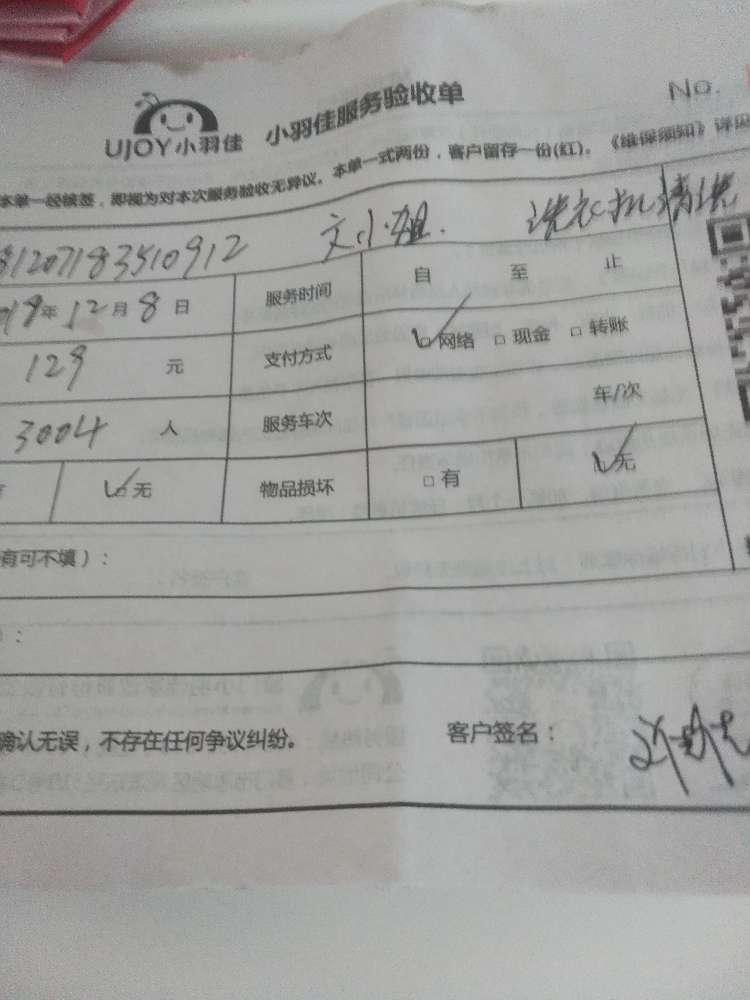 UJOY小羽佳 小羽佳服务验收单 No.
本单一经核签，即视为对本次服务验收无异议。本单一式两份，客户留存一份(红)。《维保须知》详见
81207183510912 文小姐. 洗衣机清洗
018年12月8日 服务时间 自 至 止
129 元 支付方式 网络 现金 转账
3004 人 服务车次 车/次
无 物品损坏 有 无
有可不填）：
）：
确认无误，不存在任何争议纠纷。 客户签名：